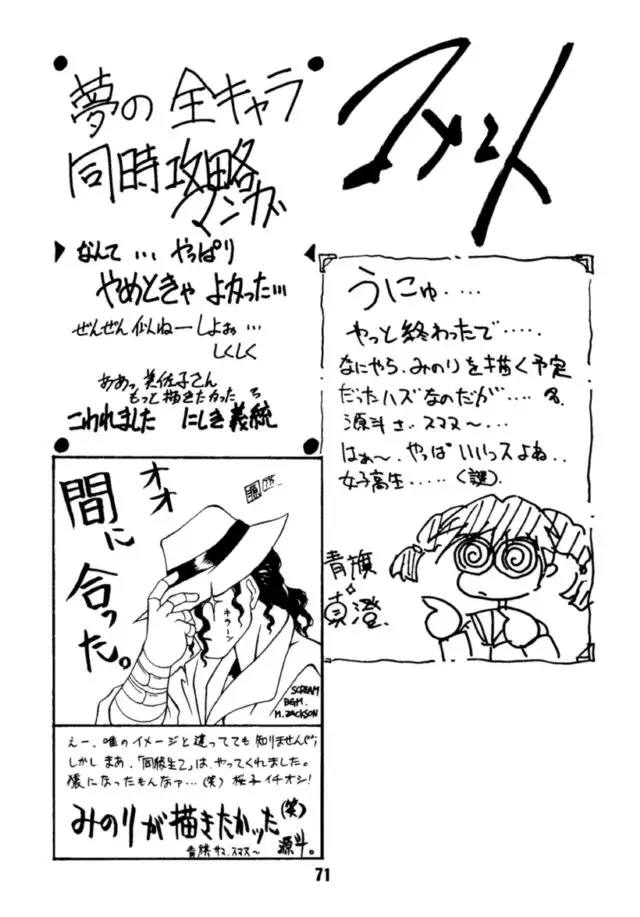 コメント
夢の全キャラ
同時攻略
マンガ
なんて…やっぱり
やめときゃよかった…
ぜんぜん似ねーしよぉ…
しくしく
ああっ美佐子さん
もっと描きたかったろ
こわれました にしき義統
うにゅ・・・・
やっと終わったで・・・・・
なにやら、みのりを描く予定
だったハズなのだが・・・・
源斗さ、スマヌ〜・・・
はぁ〜、やっぱいいっスよね・・
女子高生・・・・・(謎)
青旗
真澄
オオ
間に
合った。
キラーン
SCREAM
BGM.
M.JACKSON
えー、唯のイメージと違ってても知りませんぜ;
しかしまあ、「同級生2」は、やってくれました。
猿になったもんなァ…(笑)桜子イチオシ!
みのりが描きたかった(笑)
青旗サマ、スマヌ〜
源斗。
71